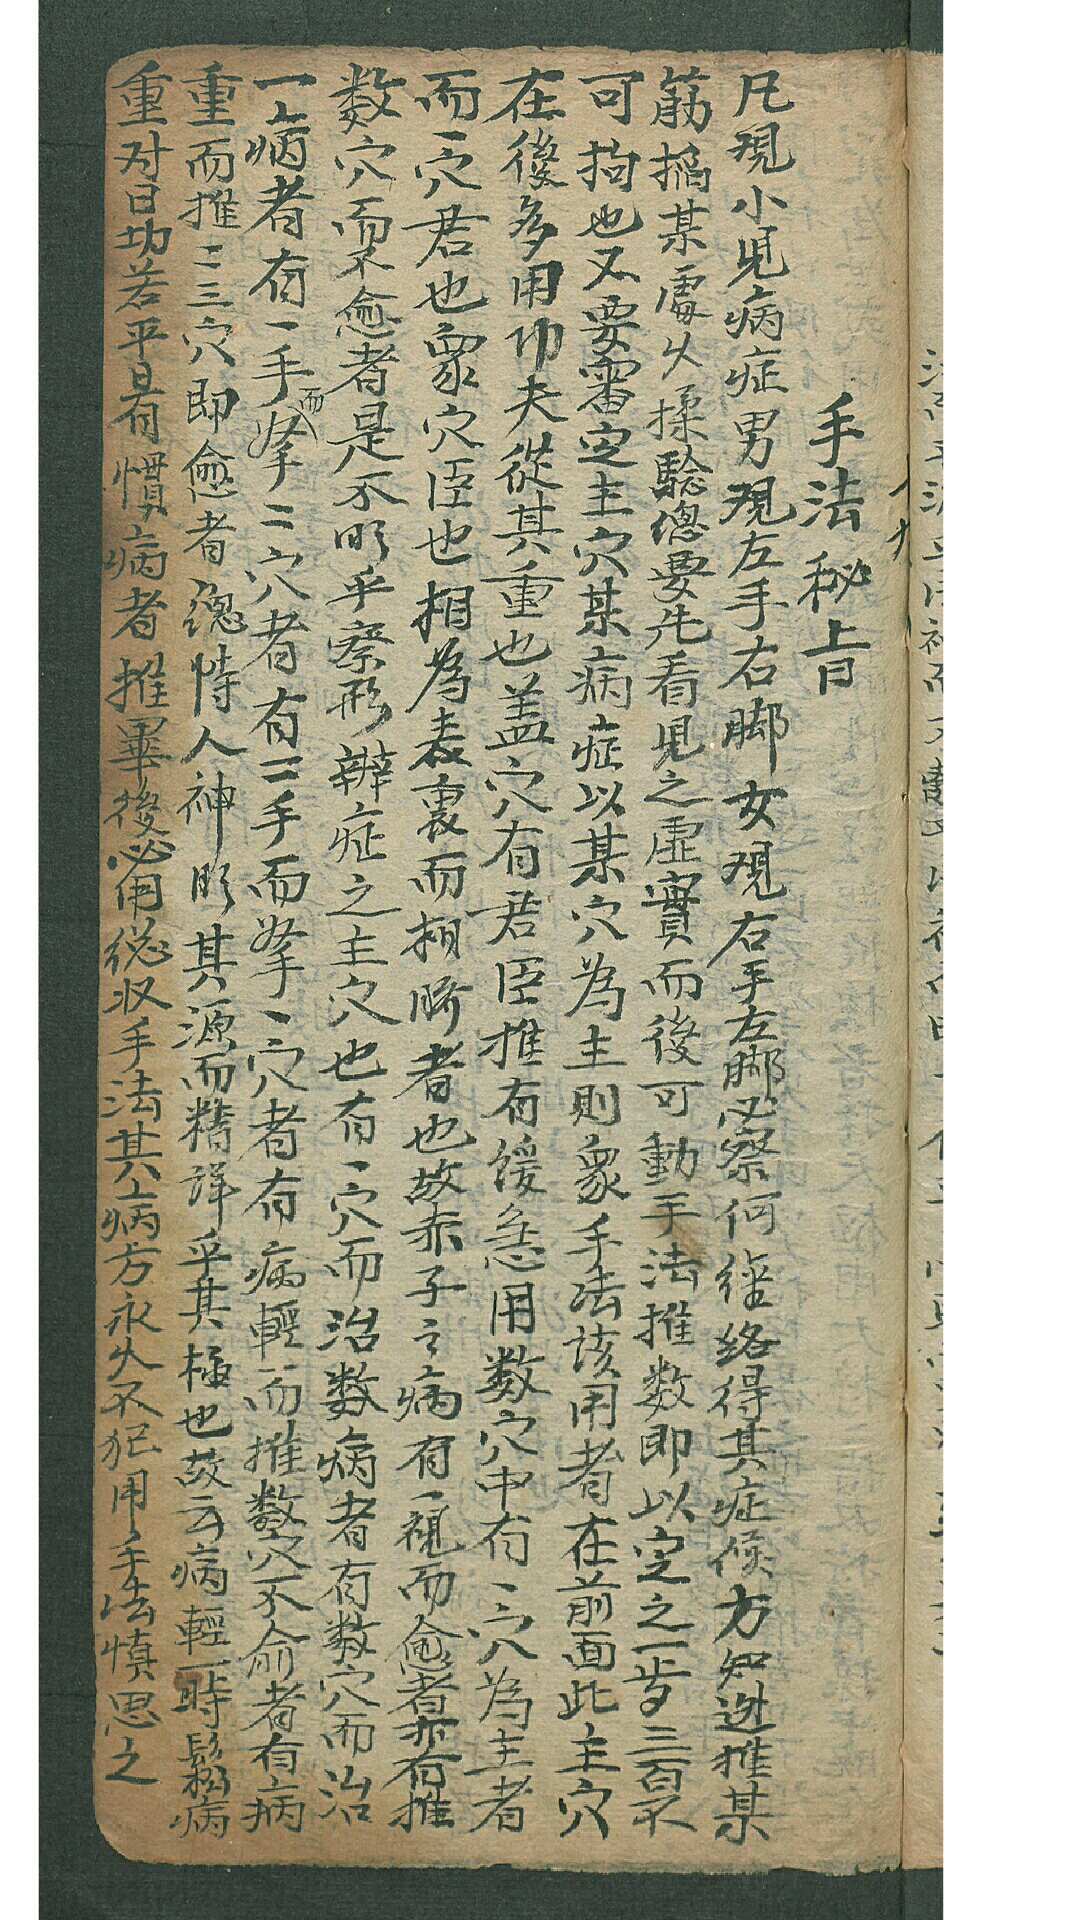 手法秘旨
凡視小兒病症男視左手右脚女視右手左脚必察何經絡得其症候方知进推某
筋掐某處久揉驗總要先看見之虛實而後可動手法推数即以定之一步三百不
可拘也又要審定主穴某病症以某穴為主則衆手法该用者在前面此主穴
在後多用功夫從其重也盖穴有君臣推有缓急用数穴中有一穴為主者
而一穴君也衆穴臣也相為表裏而相濟者也故赤子之病有一视而愈者亦有推
数穴而不愈者是不明乎察形辨症之主穴也有一穴而治数病者有数穴而治
一病者有一手而拏二穴者有二手而拏一穴者有病輕而推数穴不俞者有病
重而推二三穴即愈者總恃人神明其源而精詳乎其極也故云病輕一時鬆病
重对日功若平昔有慣病者推畢後必用總收手法其病方永久不犯用手法慎思之